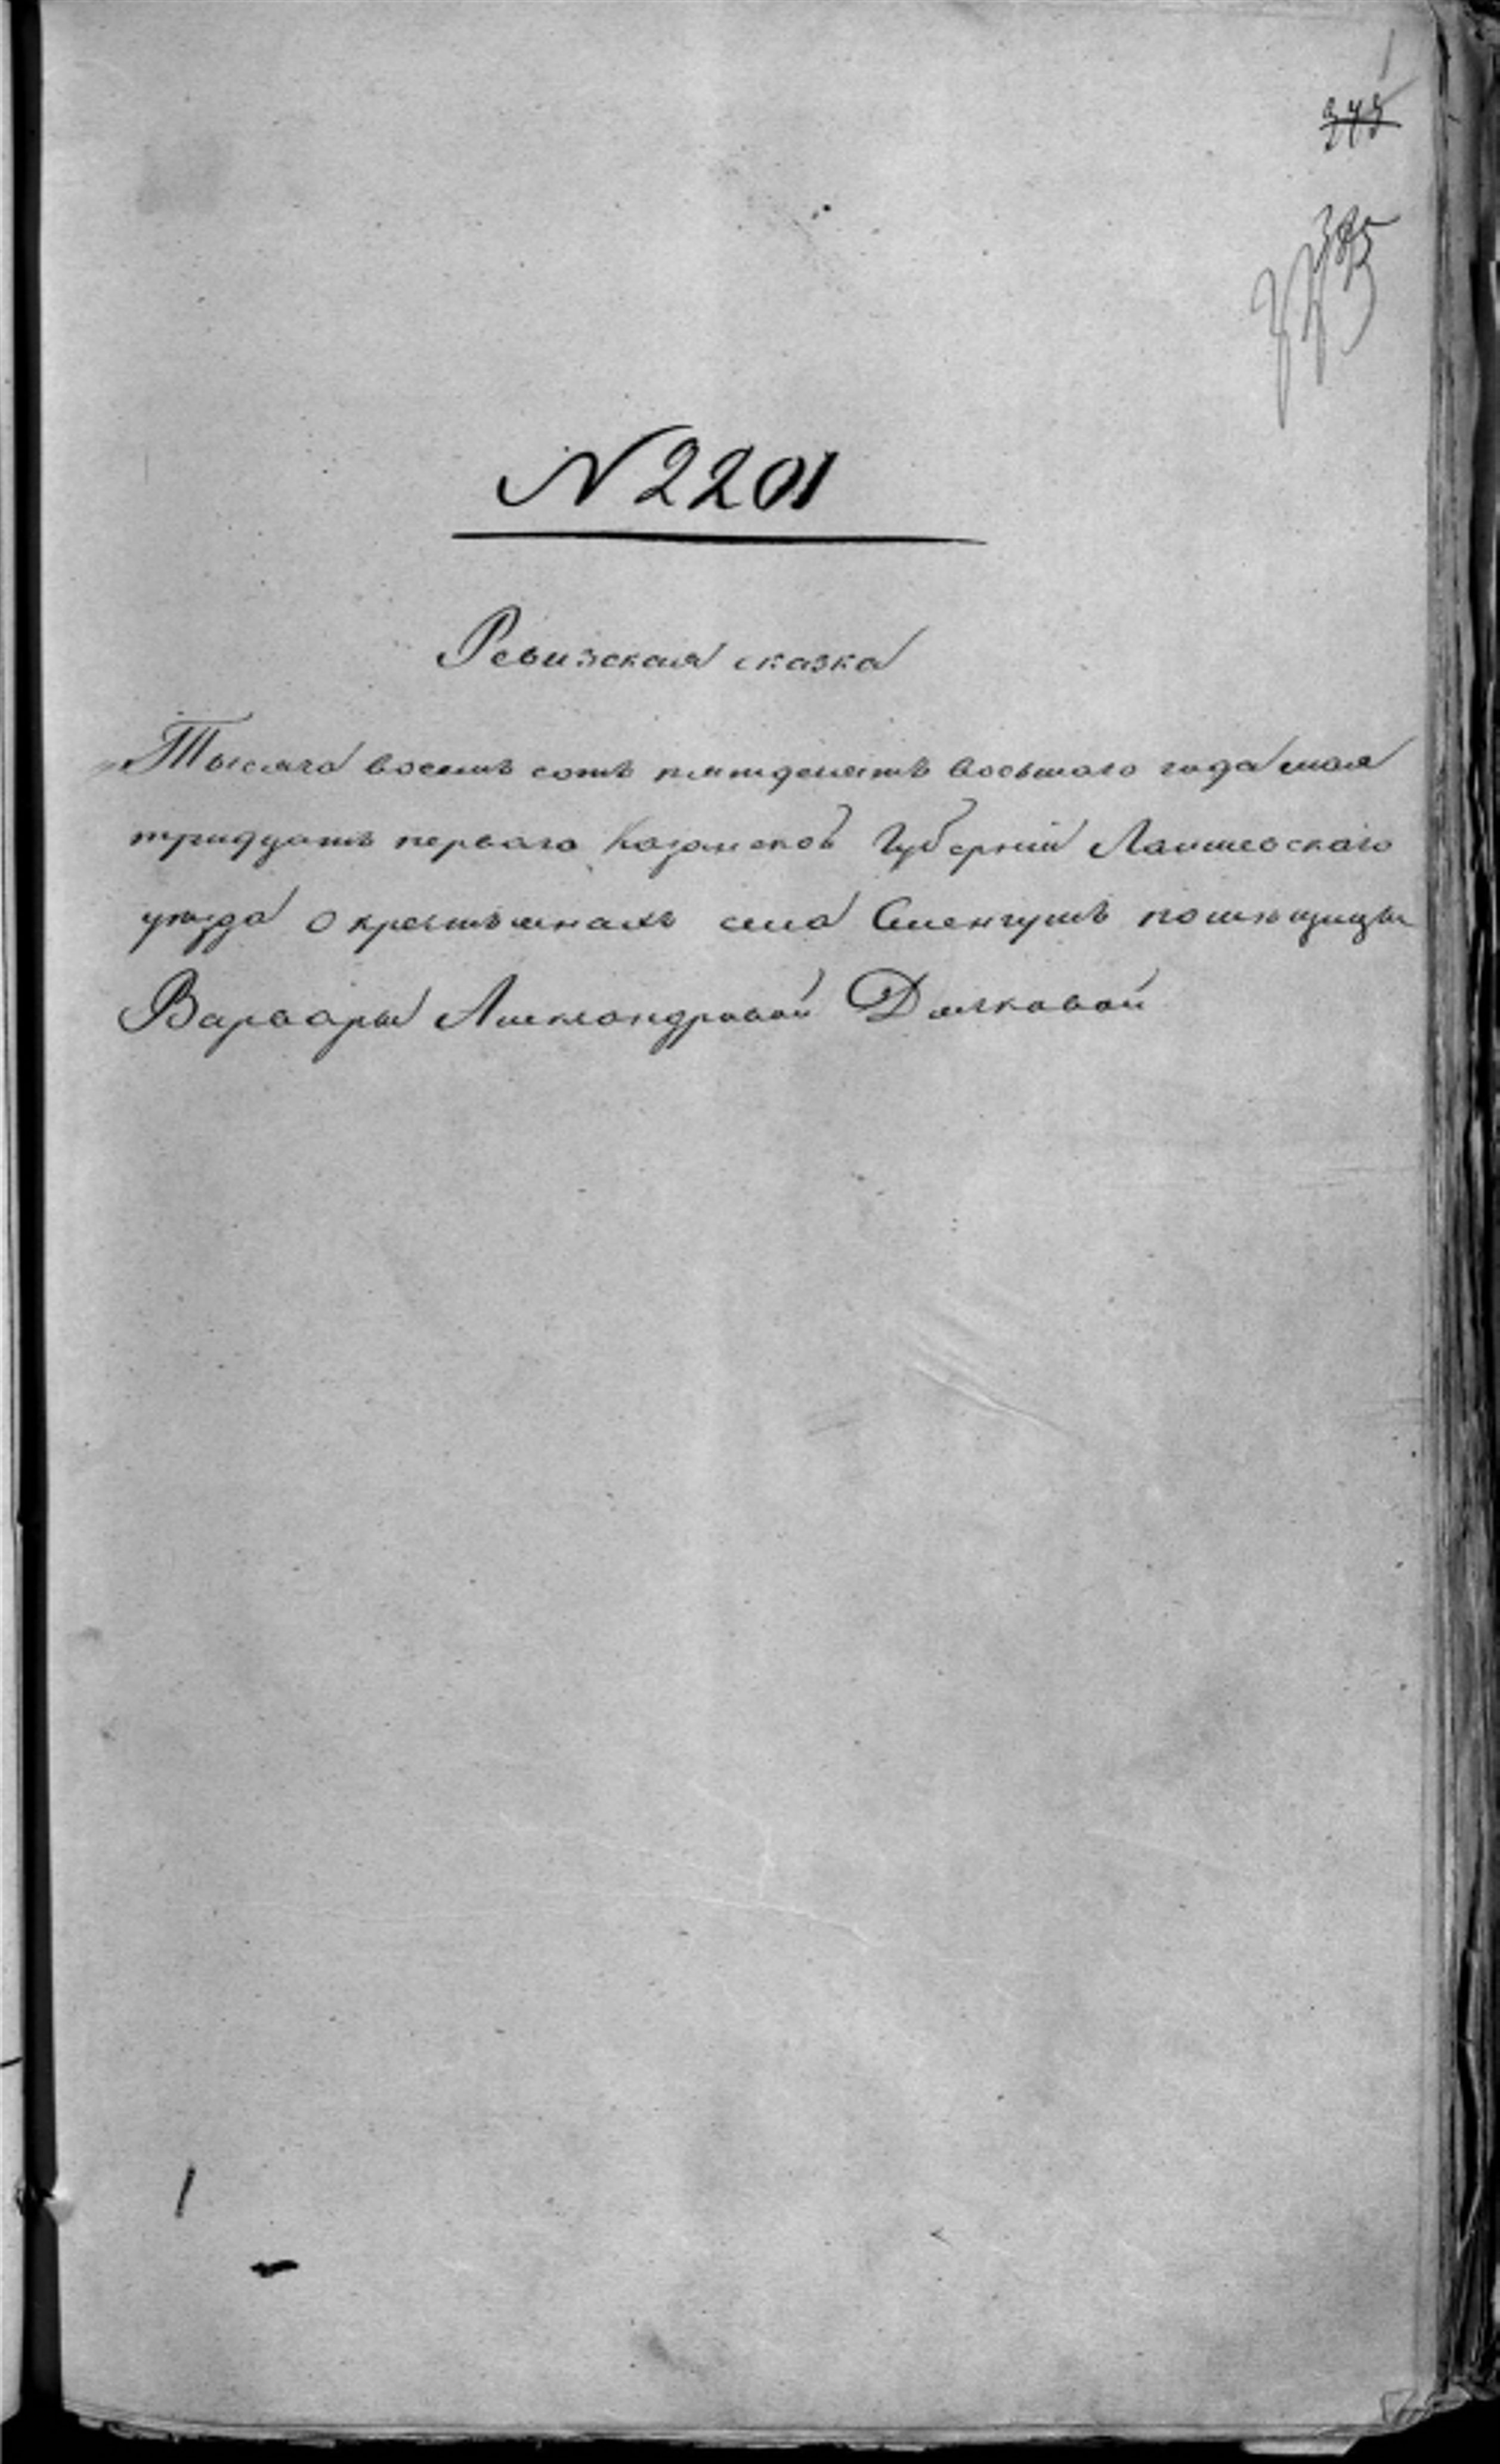 375
N 2201
Ревизская сказка
Тысяча восемь сотъ пятьдесятъ восьмого года мая
тридцать перваго Казанской Губерніи Лаишевскаго
уѣзда о крестьянахъ села Сменгушъ помѣщицы
Варвары Александровой